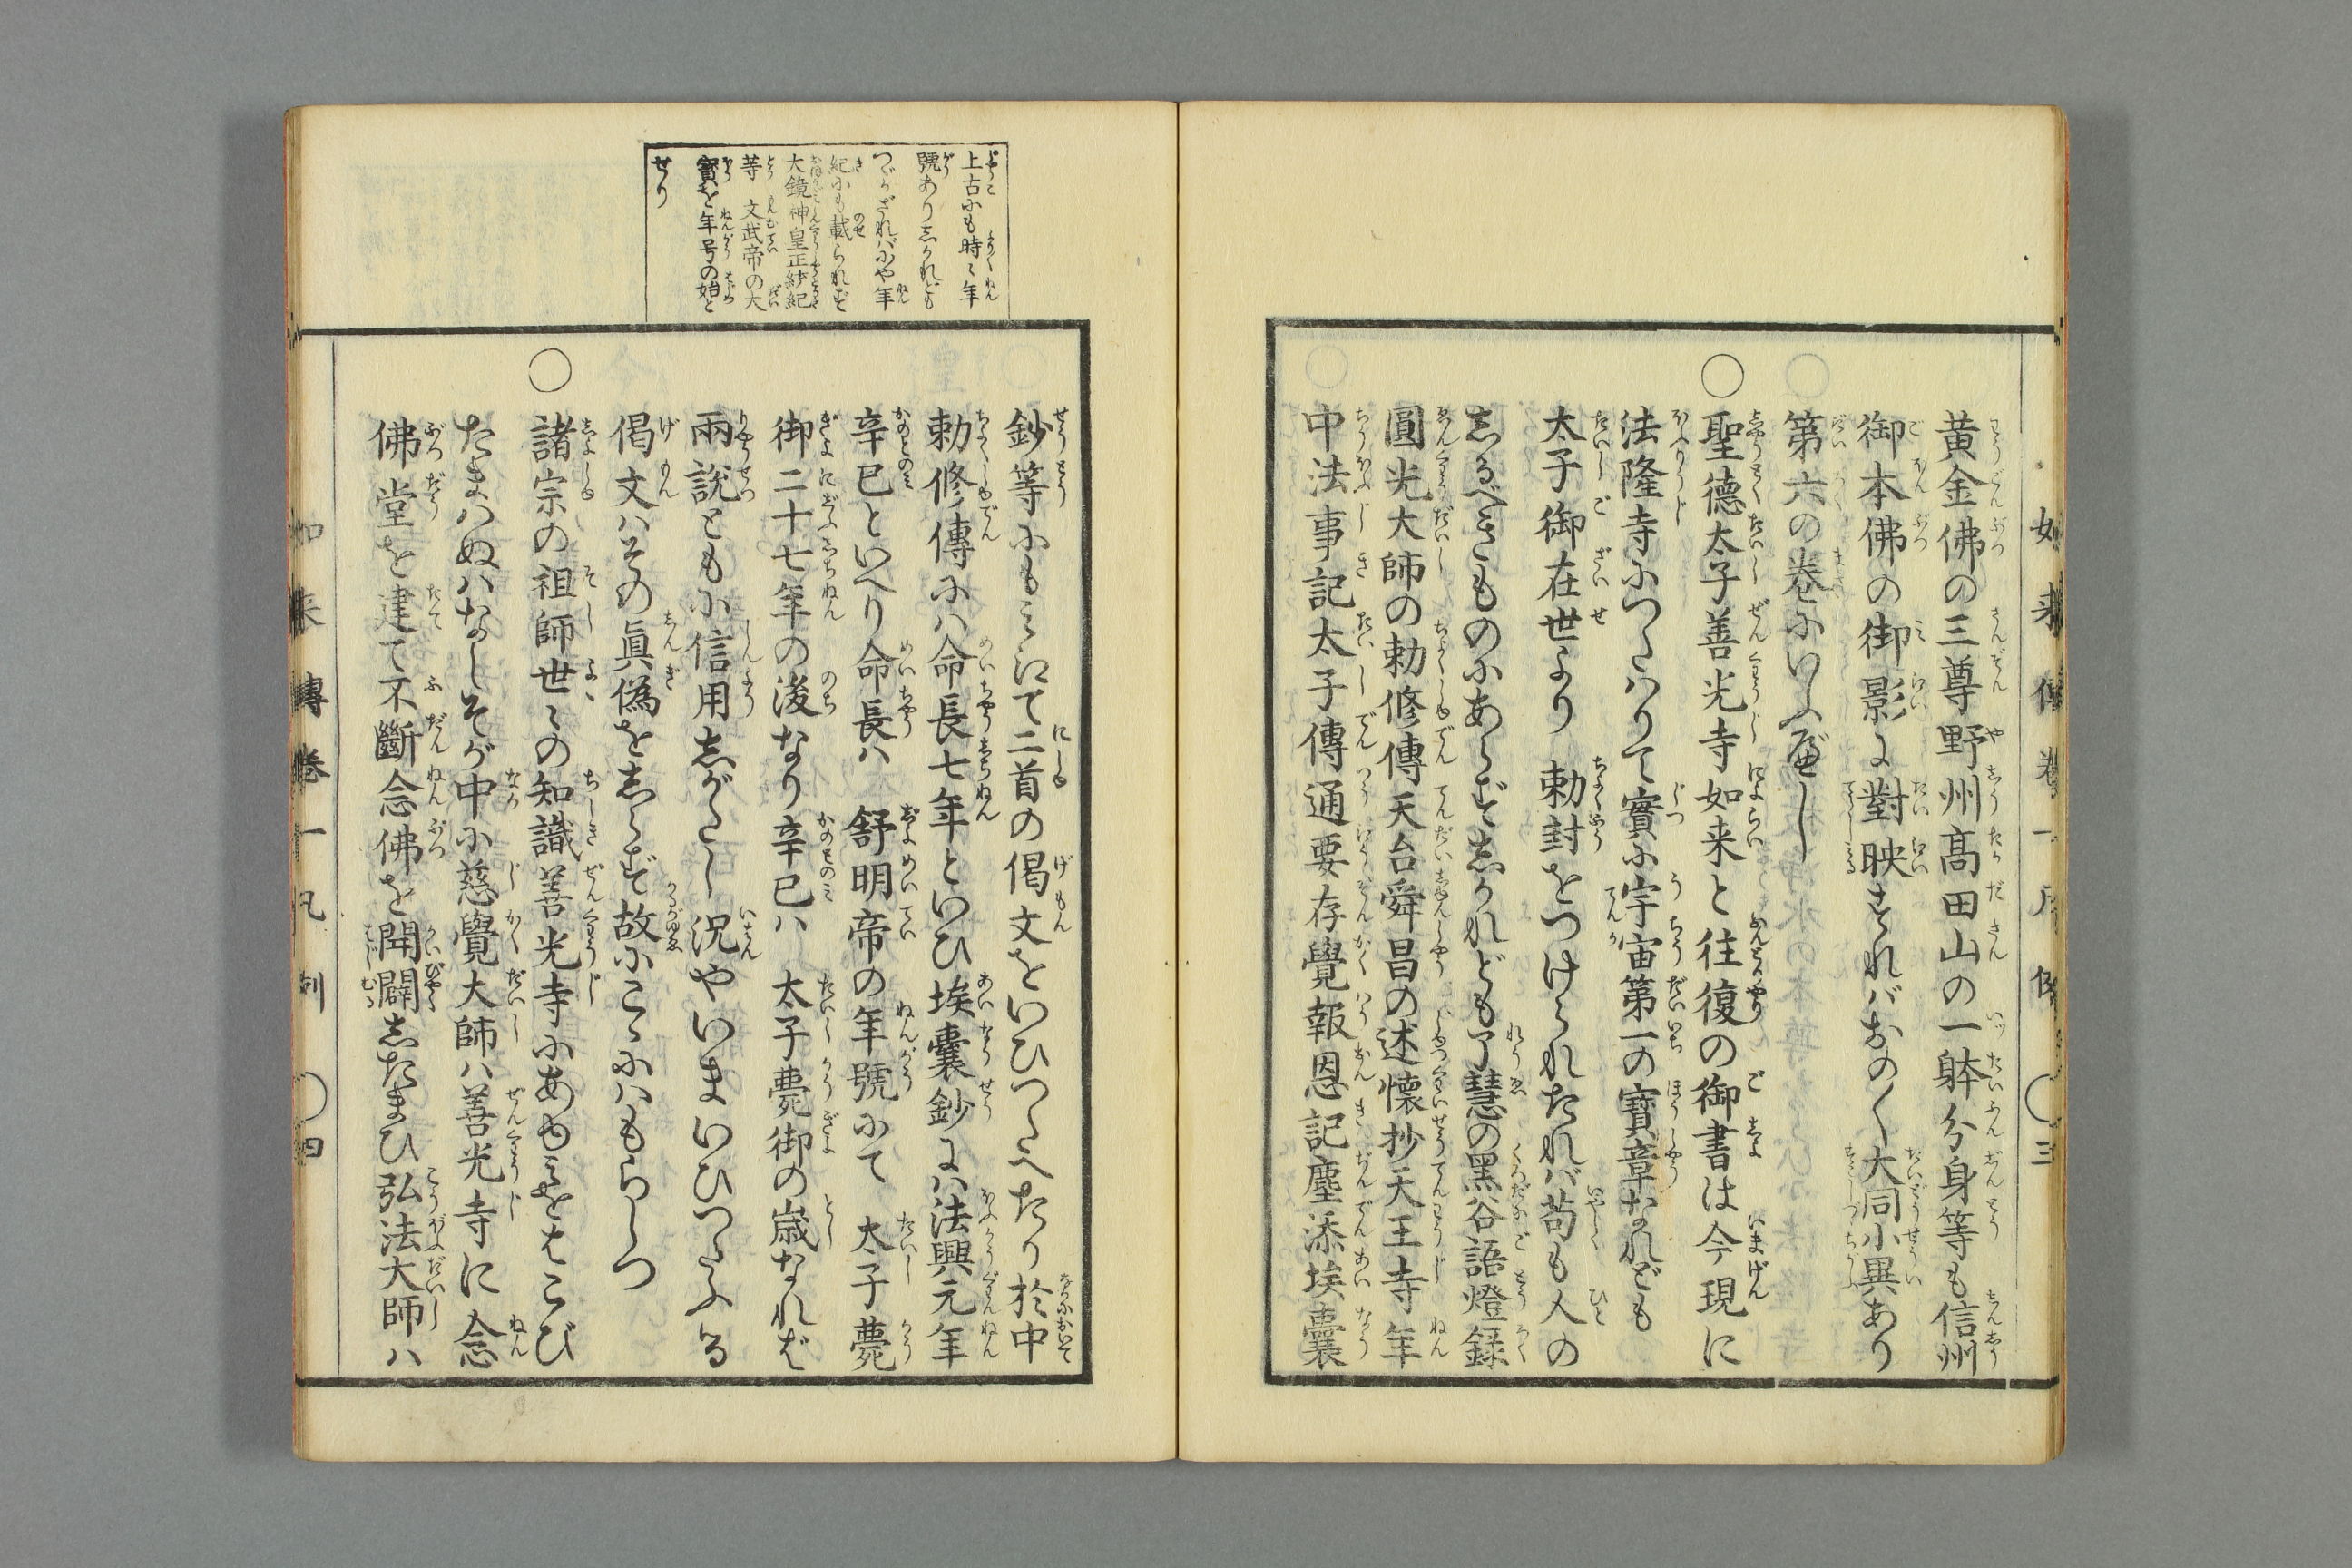 黄金佛の三尊野州髙田山の一躰分身等も信州
御本佛の御影に對映すればおの〱大同小異あり
第六の巻にいふべし
○聖德太子善光寺如来と往復の御書は今現に
法隆寺につたはりて實に宇宙第一の寳章なれども
太子御在世より 勅封をつけられたれバ苟も人の
しるべきものにあらずしかれども了慧の黑谷語燈録
圓光大師の勅修傳天台舜昌の述懐抄天王寺年
中法事記太子傳通要存覺報恩記塵添埃囊
如来傳巻一 凡例 ○三
上古にも時〻年
號ありしかれども
つゞかざれバにや年
紀にも載られず
大鏡神皇正統紀
等 文武帝の大
寳を年号の始と
せり
鈔等にもみえて二首の偈文をいひつたへたり於中
勅修傳にハ命長七年といひ埃囊鈔にハ法興元年
辛巳といへり命長ハ 舒明帝の年號にて 太子薨
御二十七年の後なり辛巳ハ 太子薨御の歳なれば
兩說ともに信用しがたし況やいまいひつたふる
偈文ハその眞偽をしらず故にこゝにハもらしつ
○諸宗の祖師世〻の知識善光寺にあゆみをはこび
たまハぬハなしそが中に慈覺大師ハ善光寺に念
佛堂を建て不斷念佛を開闢したまひ弘法大師ハ
如来傳巻一 凡例 ○四